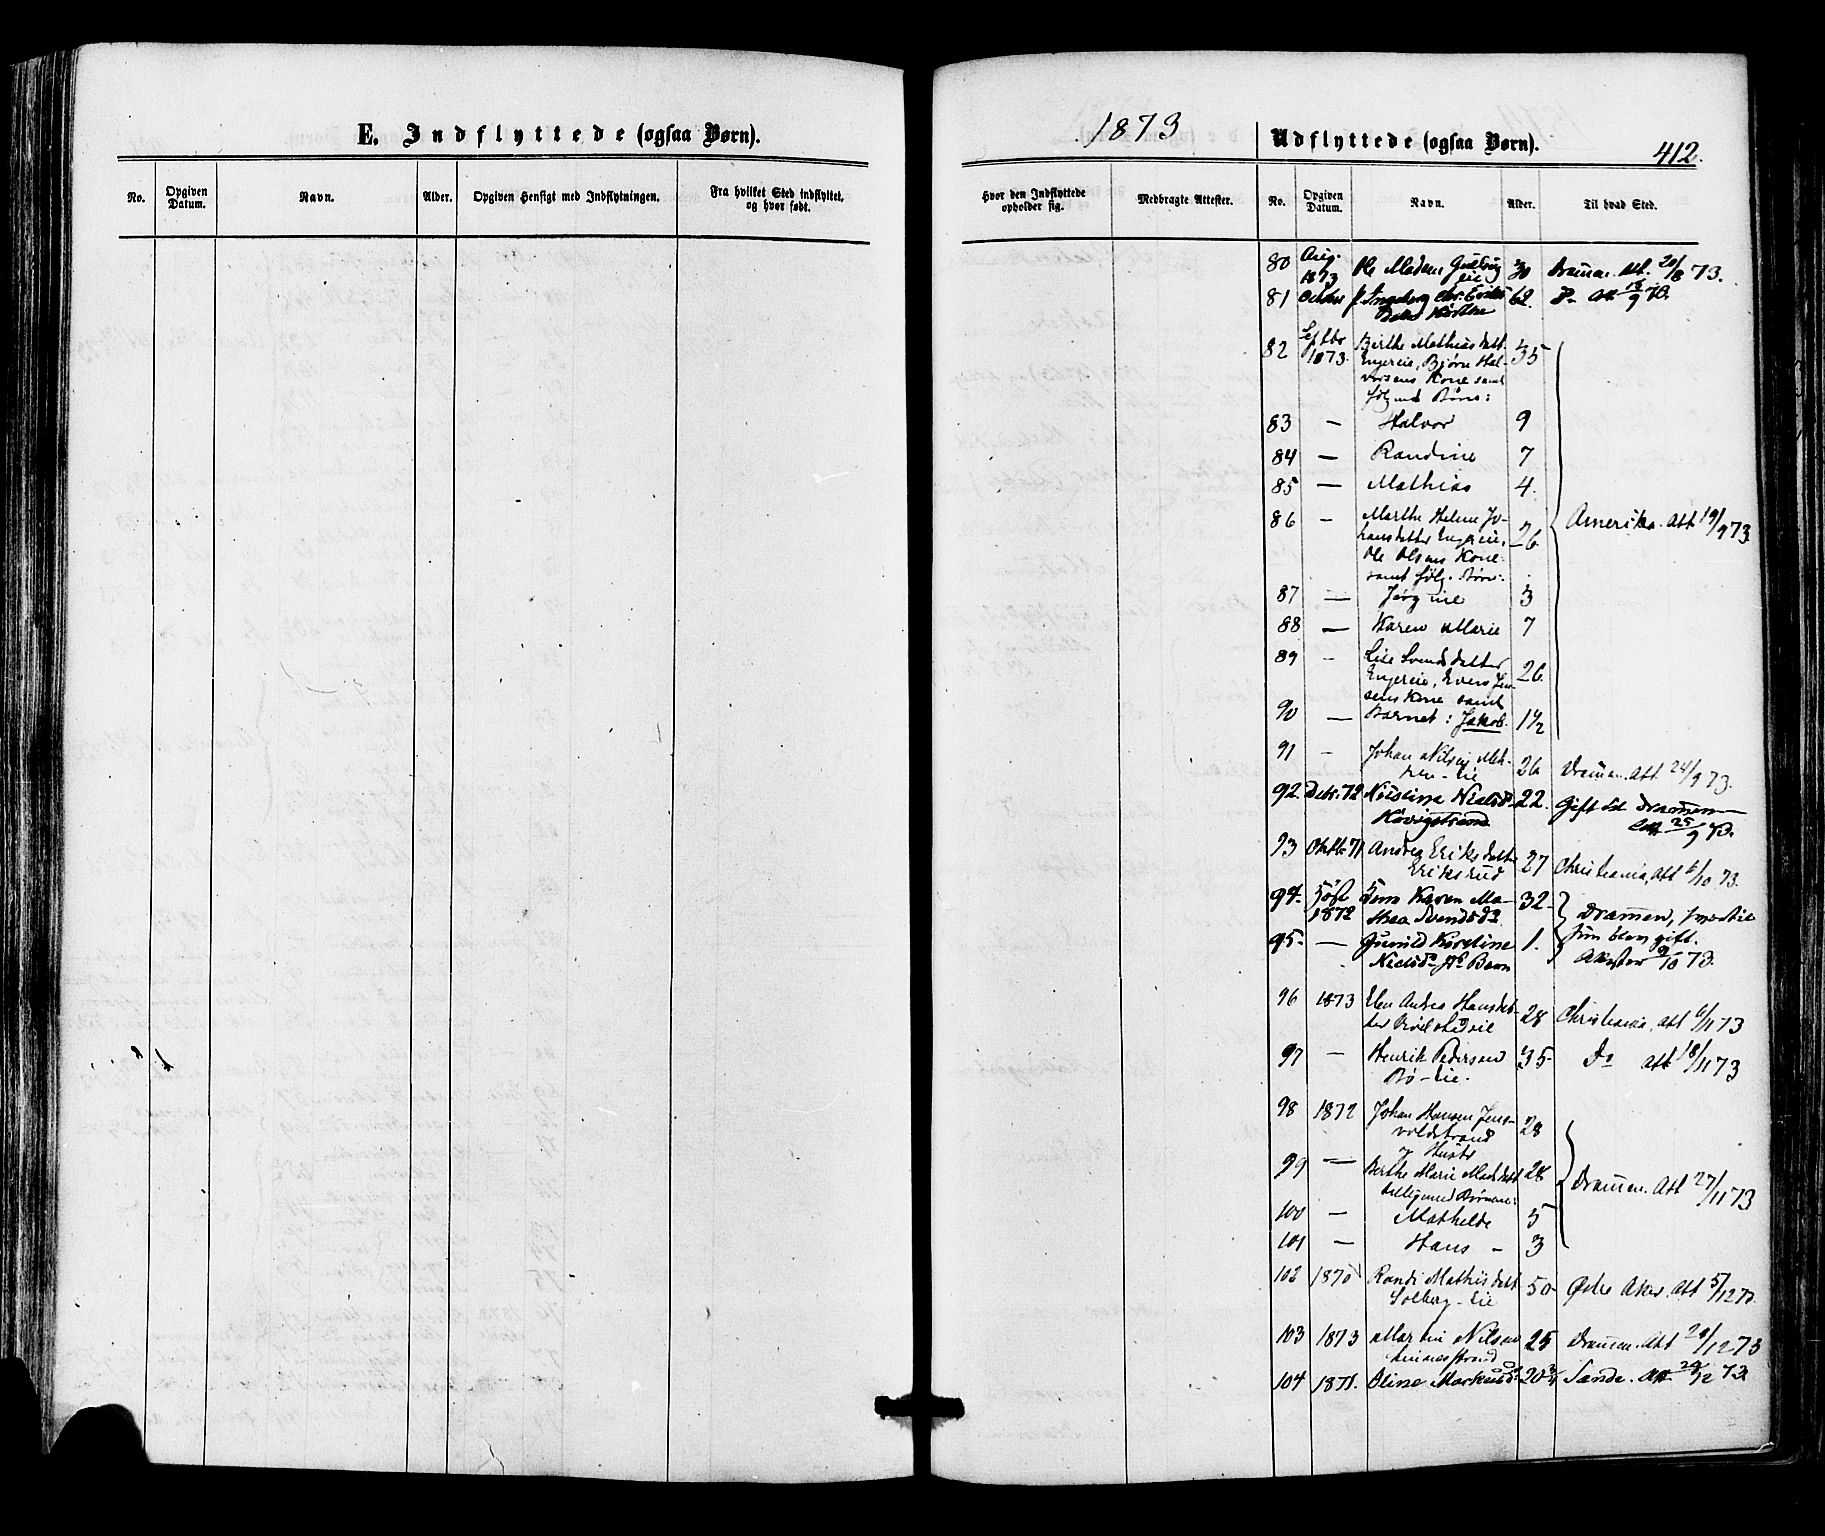 E. Indflyttede (ogsaa Børn).
No.
Opgiven Datum.
Navn.
Alder.
Opgiven Hensigt med Indflytningen.
Fra hvilket Sted indflyttet, og hvor født.
1873
Udflyttede (ogsaa Børn).
412.
Hvor den Indflyttede opholder sig.
Medbragte Attester.
No.
Opgiven Datum.
Navn.
Alder.
Til hvad Sted.
80 Aug. 1873 Ole Madsen 30 Drammen. Att. 20/8 73.
81 62 Do Att 9 73.
82 Septbr 1873. Birthe Mathiasdatt. 35
Engereie, Bjørn Hal-
vorsens Kone samt
følgende Børn:
83 — Halvor 9
84 — Randine 7
85 — Mathias 4.
86 — Marthe Helene Jo- 26
hansdatter Engereie,
Ole Olsens Kone
samt følg. Børn:
Amerika. Att 19/9 73.
87 — Jørgine 3
88 — Karen Marie 7
89 — Lise Svendsdatter 26
Engereie, Evens Jen-
sens Kone samt
90 — Barnet: Jakob. 1½
91 — Johan Nilsen 26 Drammen. Att 24/9 73.
92. 72 Kristine Nielsd. 22. Gift
Att 25/9 73.
93 Oktb. 71 Andrea Eriksdatter 27 Christiania, Att 6/10 73.
Eriksrud
94. 1872 Karen Ma- 32 Drammen,
thea Svendsd.
95. — Gunild Karoline 1. gift.
Nielsd. Barn
10 73.
96 1873 Elen Andrea Hansdat- 28 Christiania, Att 6/11 73
ter
97 — Henrik Pedersen 35 Do Att 18/11 73
Bø-eie.
98 1872 Johan Hansen Jens- 28
voldstrand
og Hustr
99 — Berthe Marie Madsdatt 28 Drammen. Att 27/11 73
tilligemed Børnene:
100 — Mathilde 5
101 — Hans — 3
102 1870 Randi Mathisdatt 50 Østre Aker. Att 5/12 73.
Solberg-eie
103 1873 Martin Nilsen 25 Drammen. Att 29/12 73
104 1871. Oline Markusd. 20¾ Sande. Att 12 73.